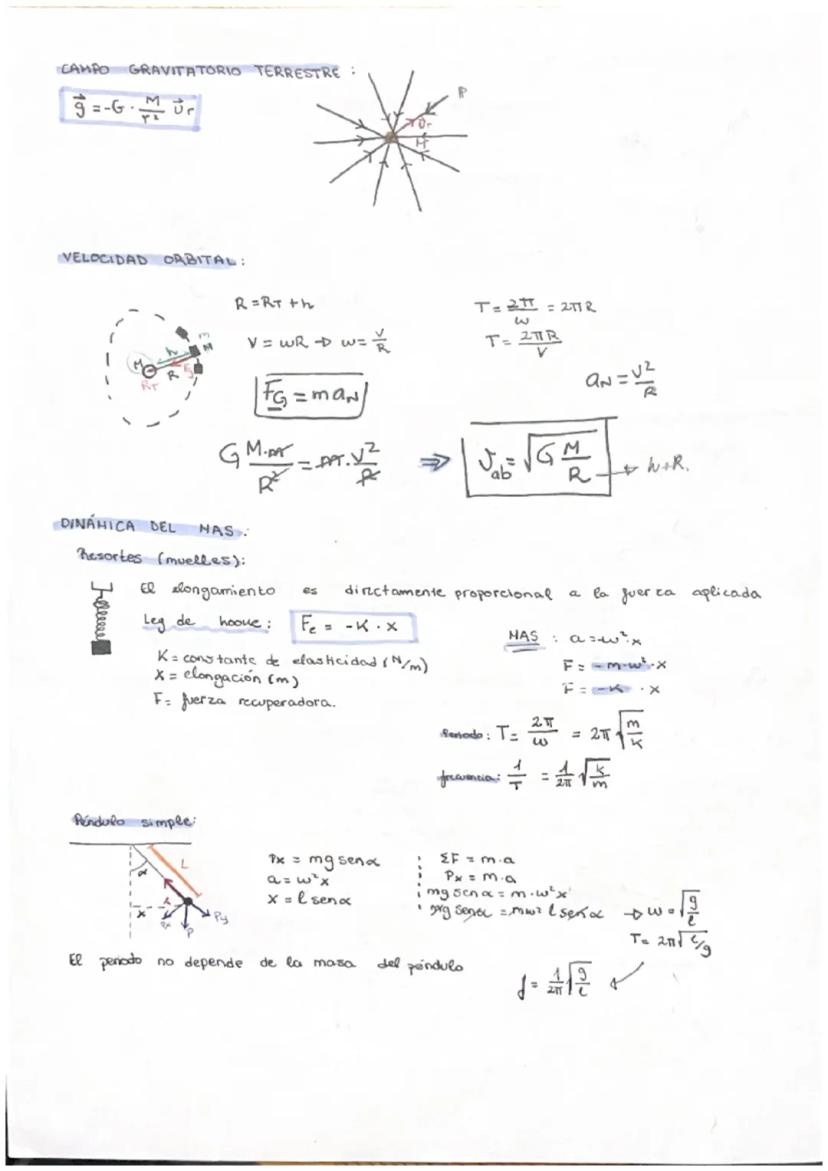 CAMPO GRAVITATORIO TERRESTRE :
g⃗ = -G · M/r² u⃗r
P
u⃗r
M
VELOCIDAD ORBITAL :
R = RT + h
T = 2π/ω = 2πR
V = ωR → ω = V/R
T = 2πR/V
m
M
h
M
R
Fg
RT
aN = V²/R
FG = m aN
G M·m/R² = m·V²/R ⇒ Vab = √(G M/R) → h+R.
DINÁMICA DEL MAS :
Resortes (muelles):
El elongamiento es directamente proporcional a la fuerza aplicada
Ley de hooke : Fe = -K · x
MAS : a = -ω²·x
K = constante de elasticidad (N/m)
F = -m·ω²·x
X = elongación (m)
F = -K · x
F = fuerza recuperadora.
Periodo : T = 2π/ω = 2π√(m/K)
frecuencia : 1/T = 1/2π √(k/m)
Péndulo simple:
L
α
x
Px
P
Py
Px = mg senα
ΣF = m·a
a = ω²x
Px = m·a
x = l senα
mg senα = m·ω²x
mg senα = mω² l senα → ω = √(g/l)
T = 2π√(l/g)
El periodo no depende de la masa del péndulo
f = 1/2π √(g/l)